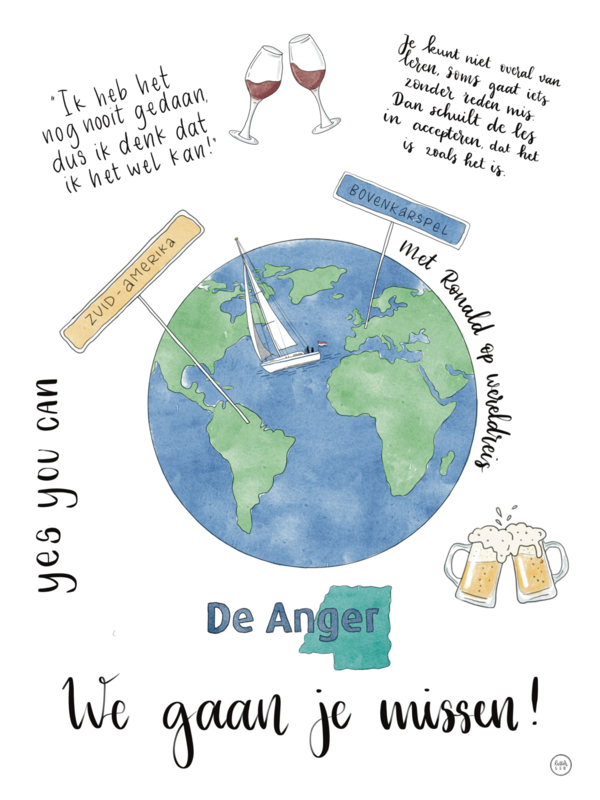 "Ik heb het
nog nooit gedaan,
dus ik denk dat
ik het wel kan!"
Je kunt niet overal van
leren, soms gaat iets
zonder reden mis.
Dan schuilt de les
in accepteren, dat het
is zoals het is.
BOVENKARSPEL
ZUID-AMERIKA
Met Ronald op wereldreis
yes you can
De Anger
We gaan je missen!